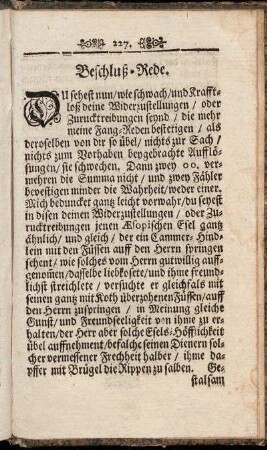 227.
Beschluß-Rede.
DU sehest nun/wie schwach/und Krafft-
loß deine Widerzustellungen / oder
Zurucktreibungen seynd / die mehr
meine Fang-Reden bestetigen / als
deroselben von dir so übel/nichts zur Sach /
nichts zum Vorhaben beygebrachte Aufflö-
sungen/sie schwechen. Dann zwey oo. ver-
mehren die Summa nicht/und zwey Fähler
bevestigen minder die Wahrheit/weder einer.
Mich beduncket gantz leicht vorwahr/du seyest
in disen deinen Widerzustellungen / oder Zu-
rucktreibungen jenen Æsopischen Esel gantz
ähnlich/und gleich / der ein Cammer-Hünd-
lein mit den Füssen auff den Herrn springen
sehent/wie solches vom Herrn gutwillig auff-
genom̃en/dasselbe liebkosete/und ihme freund-
lichst streichlete / versuchte er gleichfals mit
seinen gantz mit Koth überzohenen Füssen/auff
den Herrn zuspringen / in Meinung gleiche
Gunst/und Freundseeligkeit von ihme zu er-
halten/der Herr aber solche Esels-Höfflichkeit
übel auffnehment/befalche seinen Dienern sol-
cher vermessener Frechheit halber / ihme da-
pffer mit Brügel die Rippen zu salben. Ge-
stalsam